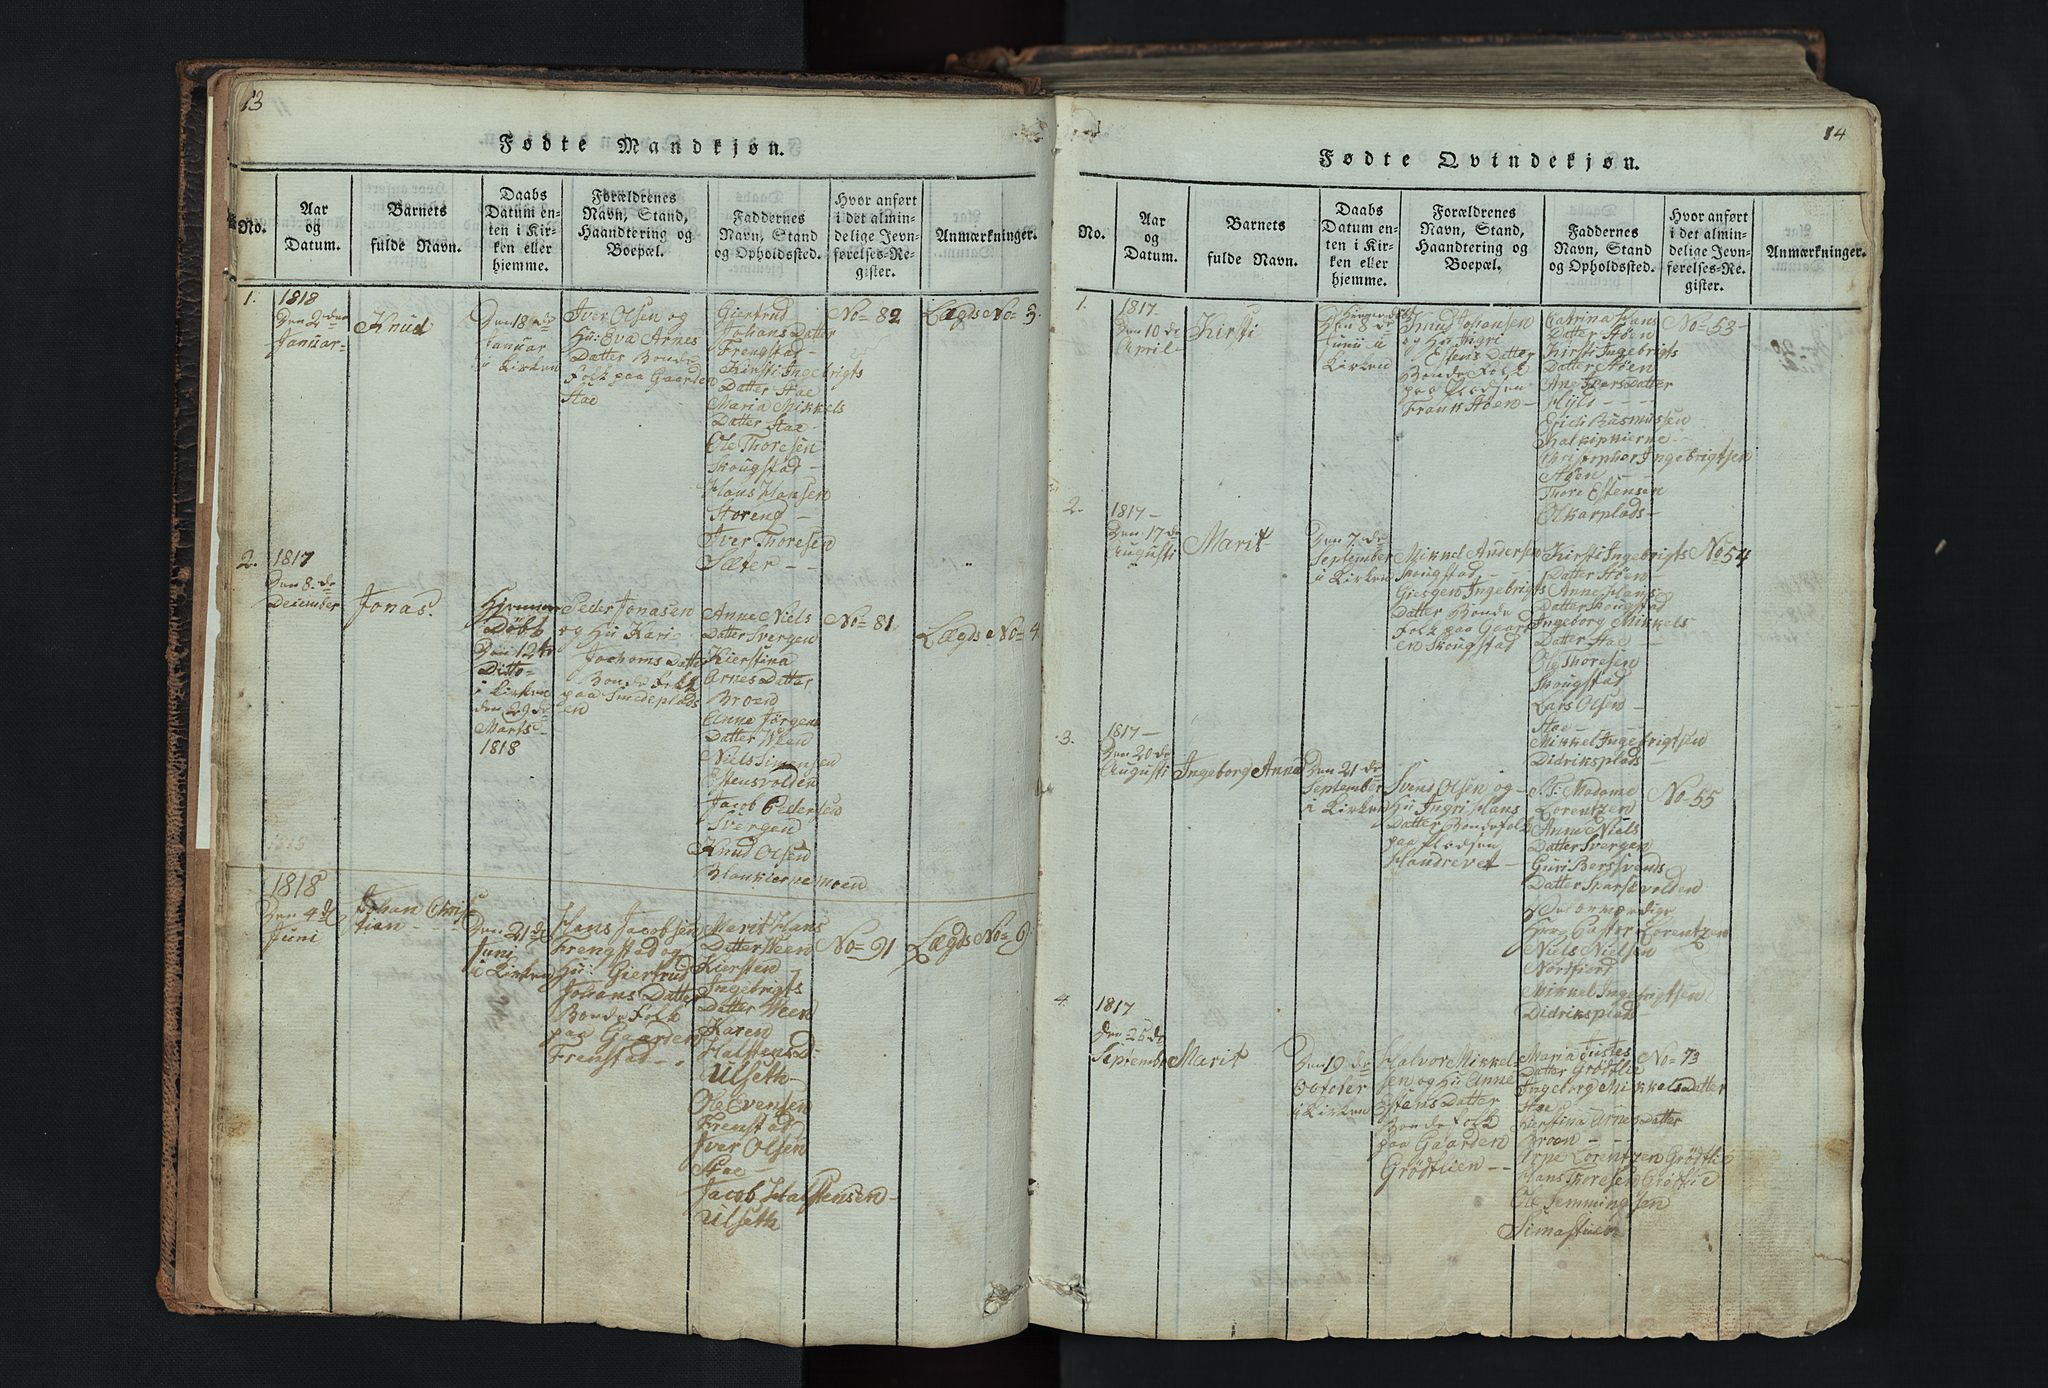 13
Fødte Mandkjøn.
No.
Aar og Datum.
Barnets fulde Navn.
Daabs Datum enten i Kirken eller hjemme.
Forældrenes Navn, Stand, Haandtering og Boepæl.
Faddernes Navn, Stand og Opholdssted.
Hvor anført i det almindelige Jevnførelses-Register.
Anmærkninger.
1.
1818
Den 2den
Januar
Knud
Den 18de
Januar
i Kirken
Iver Olsen og
Hu: Eva Arnes
Datter Bonde
Folk paa Gaarden
Stae
Giertrud
Johans Datter
Frengstad
Kirsti Ingebrigts
Datter Stae
Maria Mikkels
Datter Stae
Ole Thoresen
Skougstad
Hans Hansen
Storeng
Iver Thoresen
Sæter
No 82
Lægds No 3.
2.
1817
Den 8de
December
Jonas.
Hjemme
Døbt
Den 12te
Ditto
i Kirken
den 29de
Marts
1818
Peder Jonasen
og Hu Karie
Jochoms Datter
Bonde Folk
paa Smedeplads
en
Anne Niels
Datter Svergen
Kierstina
Arnes Datter
Broen
Anne Jørgens
Datter Ween
Niels Simensen
Estensvolden
Jacob Pedersen
Svergen
Knud Olsen
No 81
Lægds No 4
1818
Den 4de
Juni
Johan Chris
tian
Den 21de
Juni
i Kirken
Hans Jacobsen
Frengstad og
Hu: Giertrud
Johans Datter
Bonde Folk
paa Gaarden
Frenstad
Marit Hans
Datter Ween
Kiersten
Ingebrigts
Datter Ween
Karen
Halstens D
Ulseth
Ole Evensen
Frenstad
Iver Olsen
Stae
Jacob Halstensen
Ulseth
No 91
Lægds No 6
14
Fødte Qvindekjøn.
No.
Aar og Datum.
Barnets fulde Navn.
Daabs Datum enten i Kirken eller hjemme.
Forældrenes Navn, Stand, Haandtering og Boepæl.
Faddernes Navn, Stand og Opholdssted.
Hvor anført i det almindelige Jevnførelses-Register.
Anmærkninger.
1.
1817
Den 10de
April
Kirsti
Den 8de
Junii i
Kirken
Knud Johansen
og Hu Ingri
Estens Datter
Bonde Folk
paa Pladsen
Catrina Hans
Datter Støen
Kirsti Ingebrigts
Datter Støen
Ane Ivers Datter
Erich Rasmussen
Christopher Ingebrigtsen
Støen
Thore Estensen
No 53
2.
1817
Den 17de
Augusti
Marit
Den 7de
September
i Kirken
Mikkel Andersen
Skougstad
Giesgen Ingebrigts
Datter Bonde
Folk paa Gaard
en Skougstad
Kirsti Ingebrigts
Datter Støen
Anne Hans
Datter Skougstad
Ingeborg Mikkels
Datter Stae
Ole Thoresen
Skougstad
Lars Olsen
Stae
Mikkel Ingebrigtsen
Didriksplads
No 54
3.
1817
Den 20de
Augusti
Ingeborg Anna
Den 21de
September
i Kirken
Svend Olsen og
Hu Ingri Hans
Datter Bonde folk
paa Pladsen
S. T. Madame
Lorentzen
Anne Niels
Datter Svergen
Guri Berssvends
Datter Sparsevolden
Herr Paster Lorentzen
Niels Nielsen
Nordfiord
Mikkel Ingebrigtsen
Didriksplads
No 55
4.
1817
den 25de
September
Marit
Den 19de
October
i Kirken
Halvor Mikkel
sen og Hu Anne
Estens Datter
Bonde Folk
paa Gaarden
Grødtlien
Maria Justes
Datter Grødtlie
Ingeborg Mikkels Datter
Stae
Kierstina Arnes Datter
Broen
Arne Lorentzen Grødtlie
Hans Thoresen Grøtlie
Ole Jemmingsen
No 73